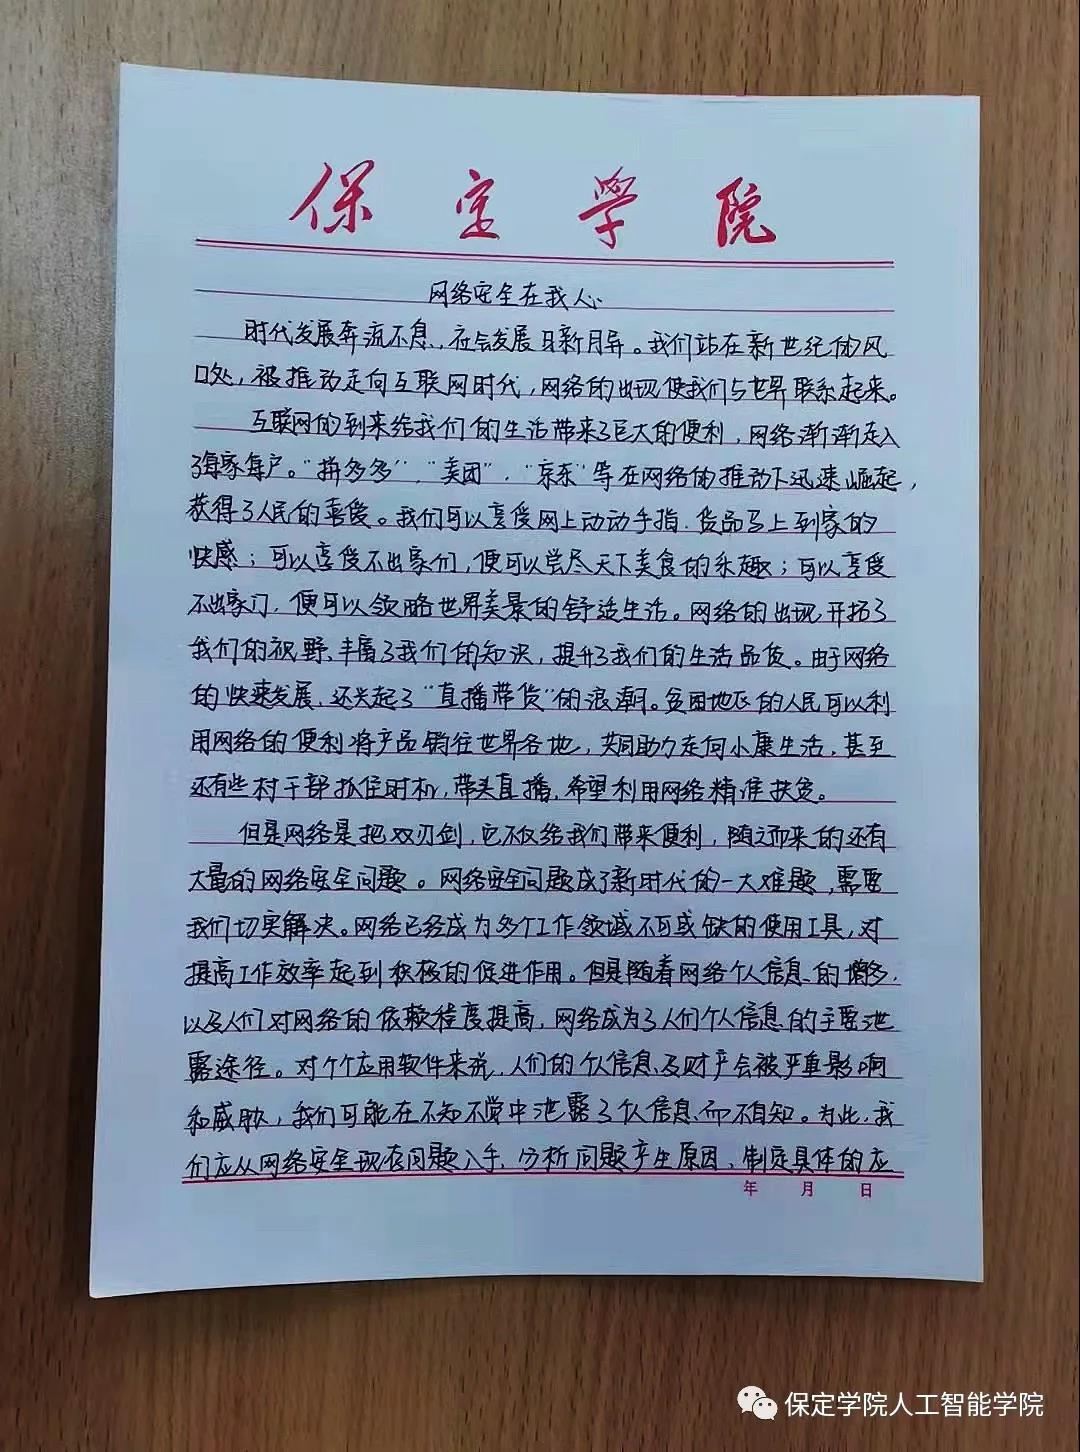 保定学院
网络安全在我心
时代发展奔流不息,社会发展日新月异。我们站在新世纪的风
口处,被推动走向互联网时代,网络的出现使我们与世界联系起来。
互联网的到来给我们的生活带来了巨大的便利,网络渐渐走入
了每家每户。“拼多多”,“美团”,“京东”等在网络的推动下迅速崛起,
获得了人民的喜爱。我们可以享受网上动动手指,货品马上到家的
快感;可以享受不出家们,便可以尝尽天下美食的乐趣;可以享受
不出家门,便可以领略世界美景的舒适生活。网络的出现,开拓了
我们的视野,丰富了我们的知识,提升了我们的生活品质。由于网络
的快速发展,还兴起了“直播带货”的浪潮。贫困地区的人民可以利
用网络的便利将产品销往世界各地,共同助力走向小康生活,甚至
还有些村干部抓住时机,带头直播,希望利用网络精准扶贫。
但是网络是把双刃剑,它不仅给我们带来便利,随之而来的还有
大量的网络安全问题。网络安全问题成了新时代的一大难题,需要
我们切实解决。网络已经成为多个工作领域不可或缺的使用工具,对
提高工作效率起到积极的促进作用。但是随着网络个人信息的增多,
以及人们对网络的依赖程度提高,网络成为了人们个人信息的主要泄
露途径。对个个应用软件来说,人们的个人信息及财产会被严重影响
和威胁,我们可能在不知不觉中泄露了个人信息而不自知。为此,我
们应从网络安全现存问题入手,分析问题产生原因,制定具体的应
年 月 日
保定学院人工智能学院